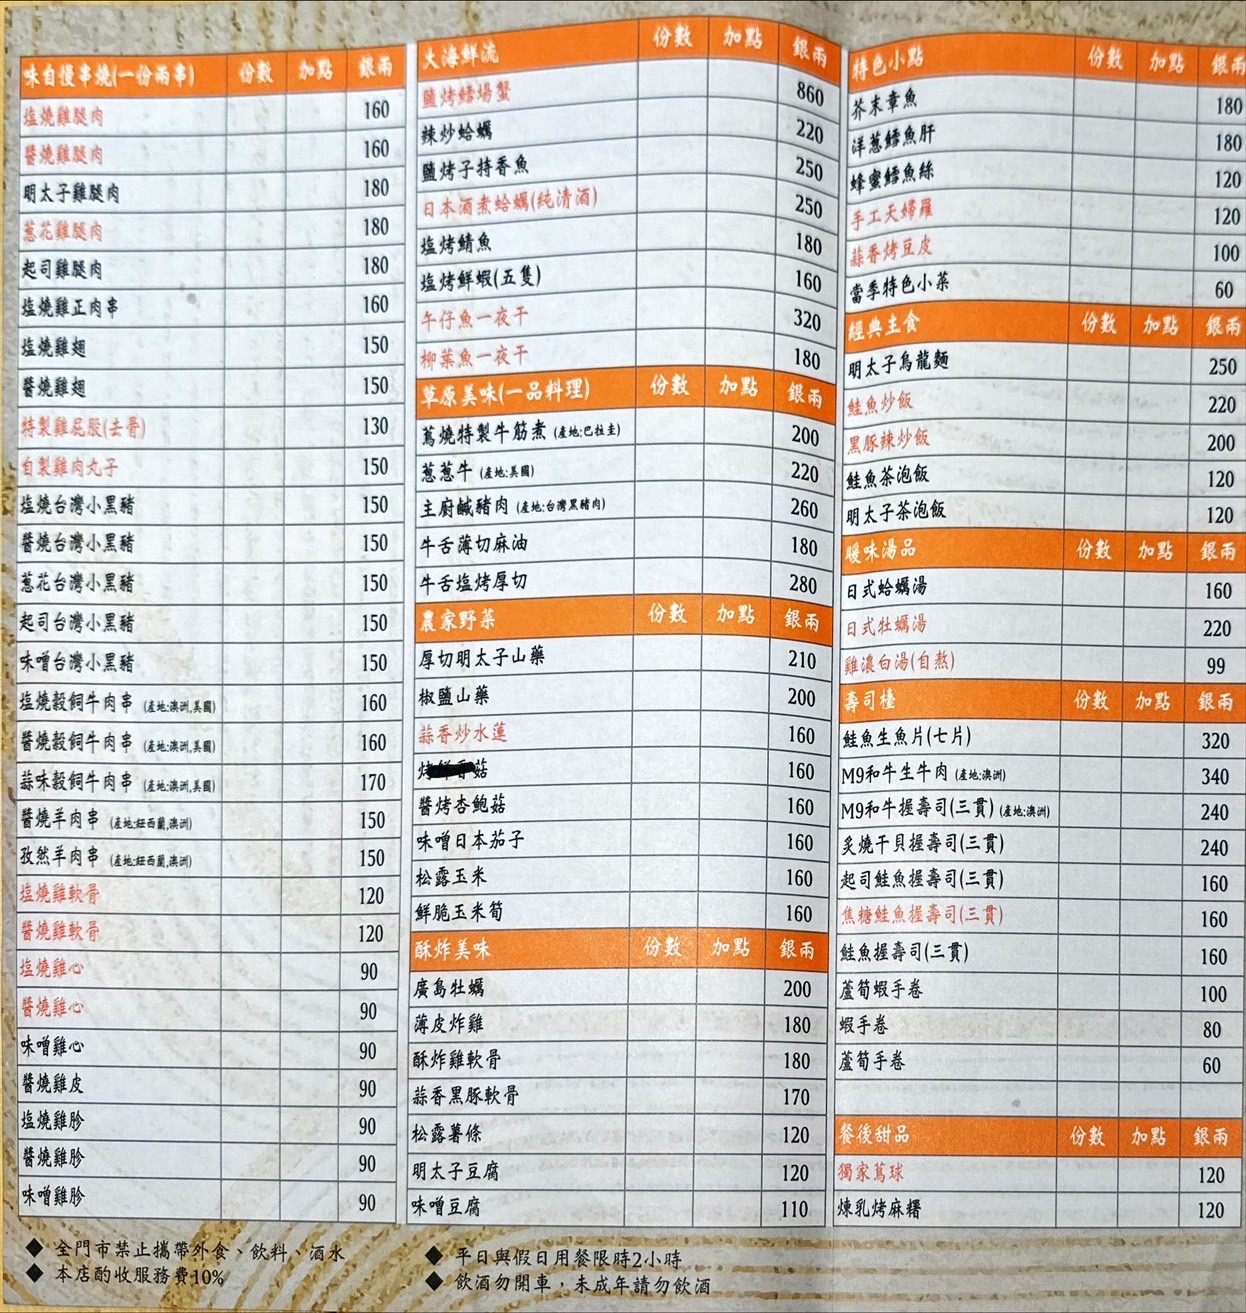 味自慢串燒(一份兩串) 份數 加點 銀兩
塩燒雞腿肉 160
醬燒雞腿肉 160
明太子雞腿肉 180
蔥花雞腿肉 180
起司雞腿肉 180
塩燒雞正肉串 160
塩燒雞翅 150
醬燒雞翅 150
特製雞屁股(去骨) 130
自製雞肉丸子 150
塩燒台灣小黑豬 150
醬燒台灣小黑豬 150
蔥花台灣小黑豬 150
起司台灣小黑豬 150
味噌台灣小黑豬 150
塩燒穀飼牛肉串 (產地:澳洲,美國) 160
醬燒穀飼牛肉串 (產地:澳洲,美國) 160
蒜味穀飼牛肉串 (產地:澳洲,美國) 170
醬燒羊肉串 (產地:紐西蘭,澳洲) 150
孜然羊肉串 (產地:紐西蘭,澳洲) 150
塩燒雞軟骨 120
醬燒雞軟骨 120
塩燒雞心 90
醬燒雞心 90
味噌雞心 90
醬燒雞皮 90
塩燒雞胗 90
醬燒雞胗 90
味噌雞胗 90
◆ 全門市禁止攜帶外食、飲料、酒水
◆ 本店酌收服務費10%
大海鮮流 份數 加點 銀兩
鹽烤鱈場蟹 860
辣炒蛤蠣 220
鹽烤子持香魚 250
日本酒煮蛤蠣(純清酒) 250
塩烤鯖魚 180
塩烤鮮蝦(五隻) 160
午仔魚一夜干 320
柳葉魚一夜干 180
草原美味(一品料理) 份數 加點 銀兩
蔦燒特製牛筋煮 (產地:巴拉圭) 200
蔥蔥牛 (產地:美國) 220
主廚鹹豬肉 (產地:台灣黑豬肉) 260
牛舌薄切麻油 180
牛舌塩烤厚切 280
農家野菜 份數 加點 銀兩
厚切明太子山藥 210
椒鹽山藥 200
蒜香炒水蓮 160
烤鮮香菇 160
醬烤杏鮑菇 160
味噌日本茄子 160
松露玉米 160
鮮脆玉米筍 160
酥炸美味 份數 加點 銀兩
廣島牡蠣 200
薄皮炸雞 180
酥炸雞軟骨 180
蒜香黑豚軟骨 170
松露薯條 120
明太子豆腐 120
味噌豆腐 110
◆ 平日與假日用餐限時2小時
◆ 飲酒勿開車，未成年請勿飲酒
特色小點 份數 加點 銀兩
芥末章魚 180
洋蔥鱈魚肝 180
蜂蜜鱈魚絲 120
手工天婦羅 120
蒜香烤豆皮 100
當季特色小菜 60
經典主食 份數 加點 銀兩
明太子烏龍麵 250
鮭魚炒飯 220
黑豚辣炒飯 200
鮭魚茶泡飯 120
明太子茶泡飯 120
暖味湯品 份數 加點 銀兩
日式蛤蠣湯 160
日式牡蠣湯 220
雞濃白湯(自熬) 99
壽司檯 份數 加點 銀兩
鮭魚生魚片(七片) 320
M9和牛生牛肉 (產地:澳洲) 340
M9和牛握壽司(三貫) (產地:澳洲) 240
炙燒干貝握壽司(三貫) 240
起司鮭魚握壽司(三貫) 160
焦糖鮭魚握壽司(三貫) 160
鮭魚握壽司(三貫) 160
蘆筍蝦手卷 100
蝦手卷 80
蘆筍手卷 60
餐後甜品 份數 加點 銀兩
獨家蔦球 120
煉乳烤麻糬 120